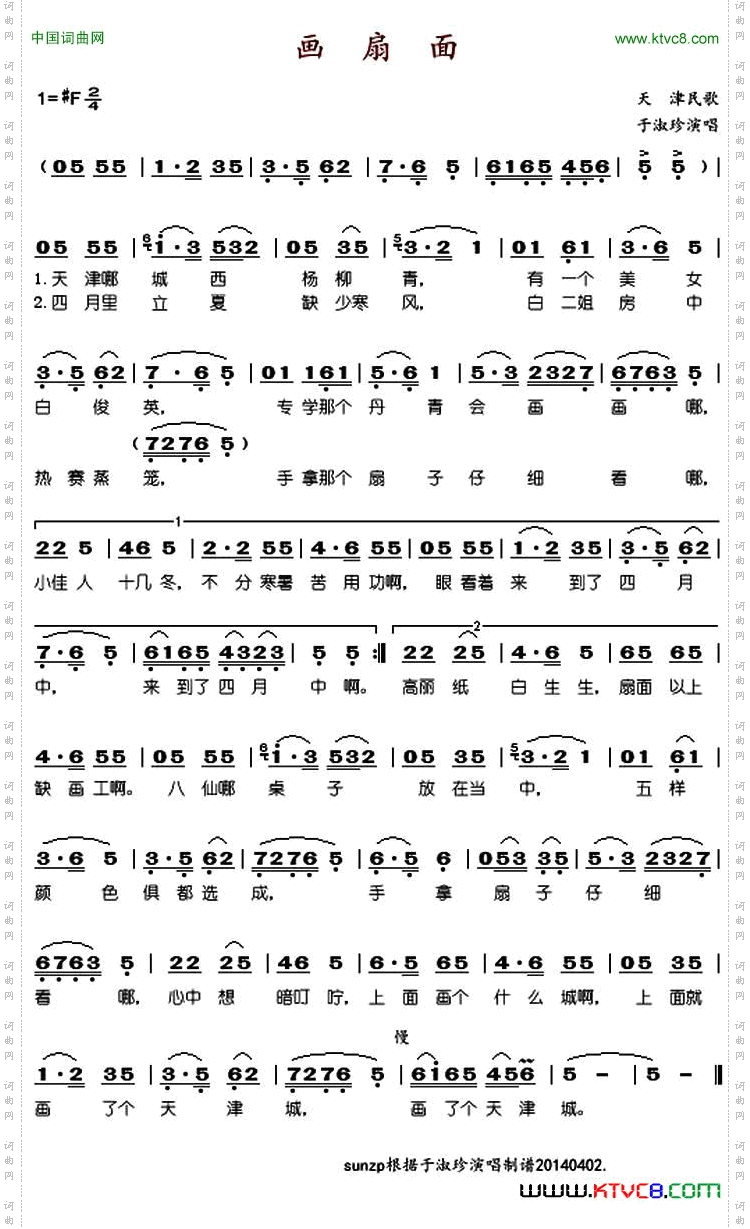 中国词曲网
画 扇 面
www.ktvc8.com
1=#F 2/4
天 津民歌
于淑珍演唱
( 05 55 | 1·2 35 | 3·5 62 | 7·6 5 | 6165 456 | 5 5 ) |
05 55 | 6 i·3 532 | 05 35 | 5 3·2 1 | 01 61 | 3·6 5 |
1.天津哪 城 西 杨柳 青, 有 一个 美 女
2.四月里 立 夏 缺少寒 风, 白 二姐 房 中
3·5 62 | 7·6 5 | 01 161 | 5·6 1 | 5·3 2327 | 6763 5 |
白 俊 英, 专学那个 丹 青 会 画 画 哪,
( 7276 5 )
热赛蒸 笼, 手拿那个 扇 子 仔 细 看 哪,
1
22 5 | 46 5 | 2·2 55 | 4·6 55 | 05 55 | 1·2 35 | 3·5 62 |
小佳 人 十几 冬, 不 分寒暑 苦 用功啊, 眼 看着 来 到了 四 月
2
7·6 5 | 6165 4323 | 5 5 :‖ 22 25 | 4·6 5 | 65 65 |
中, 来 到了 四 月 中 啊。 高丽 纸 白 生 生, 扇面 以上
4·6 55 | 05 55 | 6 i·3 532 | 05 35 | 5 3·2 1 | 01 61 |
缺 画 工啊。 八 仙哪 桌 子 放 在当 中, 五 样
3·6 5 | 3·5 62 | 7276 5 | 6·5 6 | 053 35 | 5·3 2327 |
颜 色 俱 都 选 成, 手 拿 扇 子 仔 细
6763 5 | 22 25 | 46 5 | 6·5 65 | 4·6 55 | 05 35 |
看 哪, 心中 想 暗叮 咛, 上 面 画个 什 么 城啊, 上 面就
慢
1·2 35 | 3·5 62 | 7276 5 | 6i65 456 | 5 - | 5 - ‖
画 了个 天 津 城, 画 了个 天 津 城。
sunzp根据于淑珍演唱制谱20140402.
www.KTVC8.com
词曲网